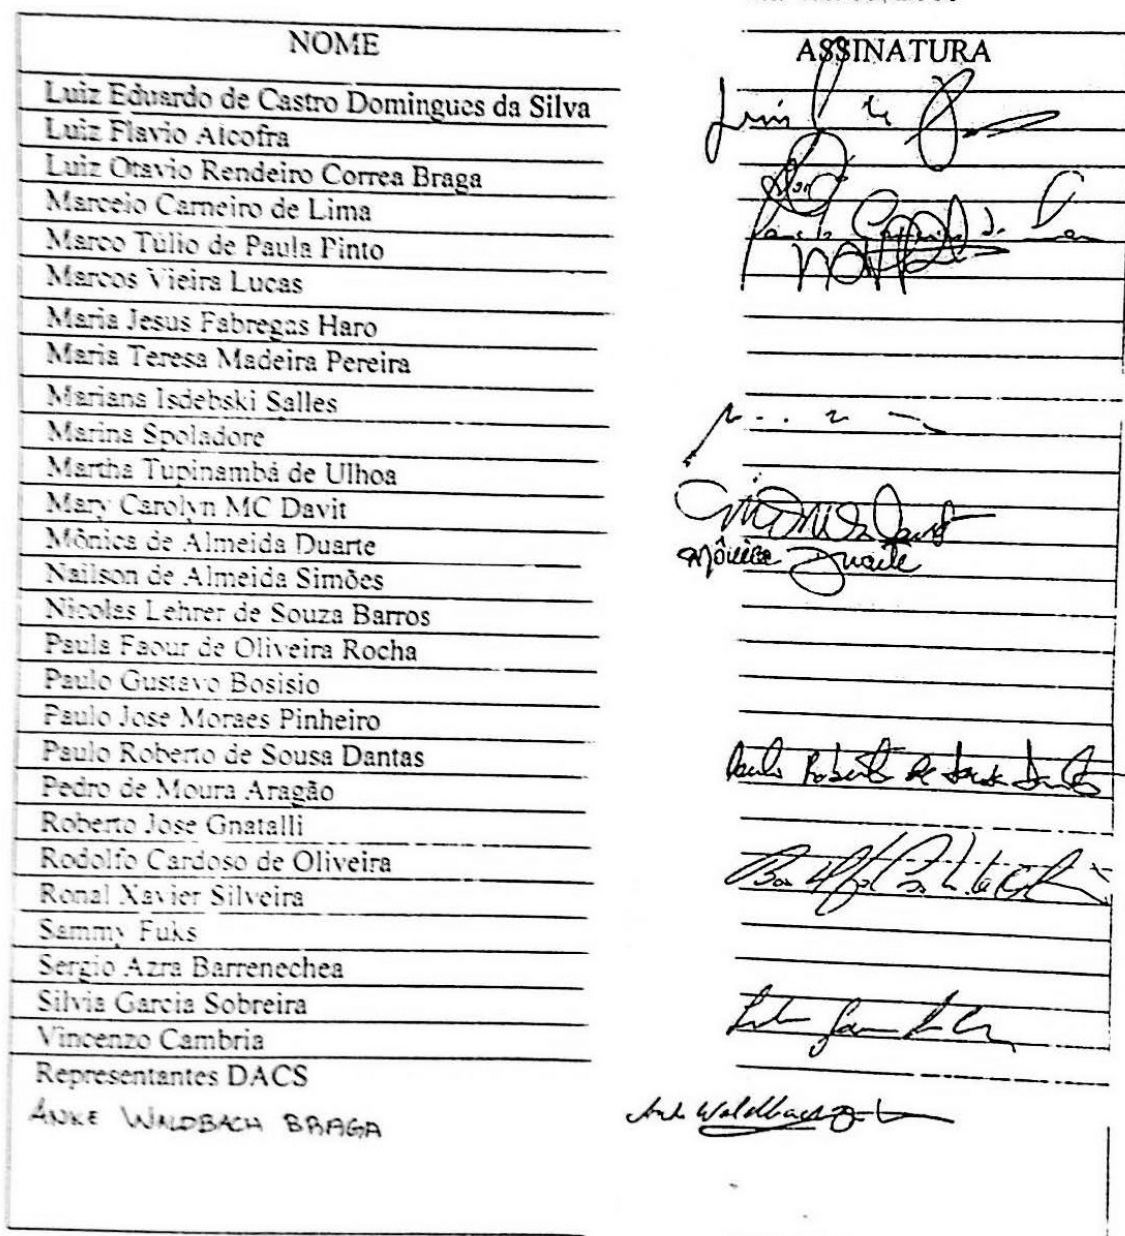 NOME ASSINATURA
Luiz Eduardo de Castro Domingues da Silva
Luiz Flavio Alcofra
Luiz Otavio Rendeiro Correa Braga
Marcelo Carneiro de Lima
Marco Túlio de Paula Pinto
Marcos Vieira Lucas
Maria Jesus Fabregas Haro
Maria Teresa Madeira Pereira
Mariana Isdebski Salles
Marina Spoladore
Martha Tupinambá de Ulhoa
Mary Carolyn MC Davit
Mônica de Almeida Duarte Mônica Duarte
Nailson de Almeida Simões
Nicolas Lehrer de Souza Barros
Paula Faour de Oliveira Rocha
Paulo Gustavo Bosisio
Paulo Jose Moraes Pinheiro
Paulo Roberto de Sousa Dantas Paulo Roberto de Sousa Dantas
Pedro de Moura Aragão
Roberto Jose Gnatalli
Rodolfo Cardoso de Oliveira
Ronal Xavier Silveira
Sammy Fuks
Sergio Azra Barrenechea
Silvia Garcia Sobreira
Vincenzo Cambria
Representantes DACS
ANKE WALDBACH BRAGA